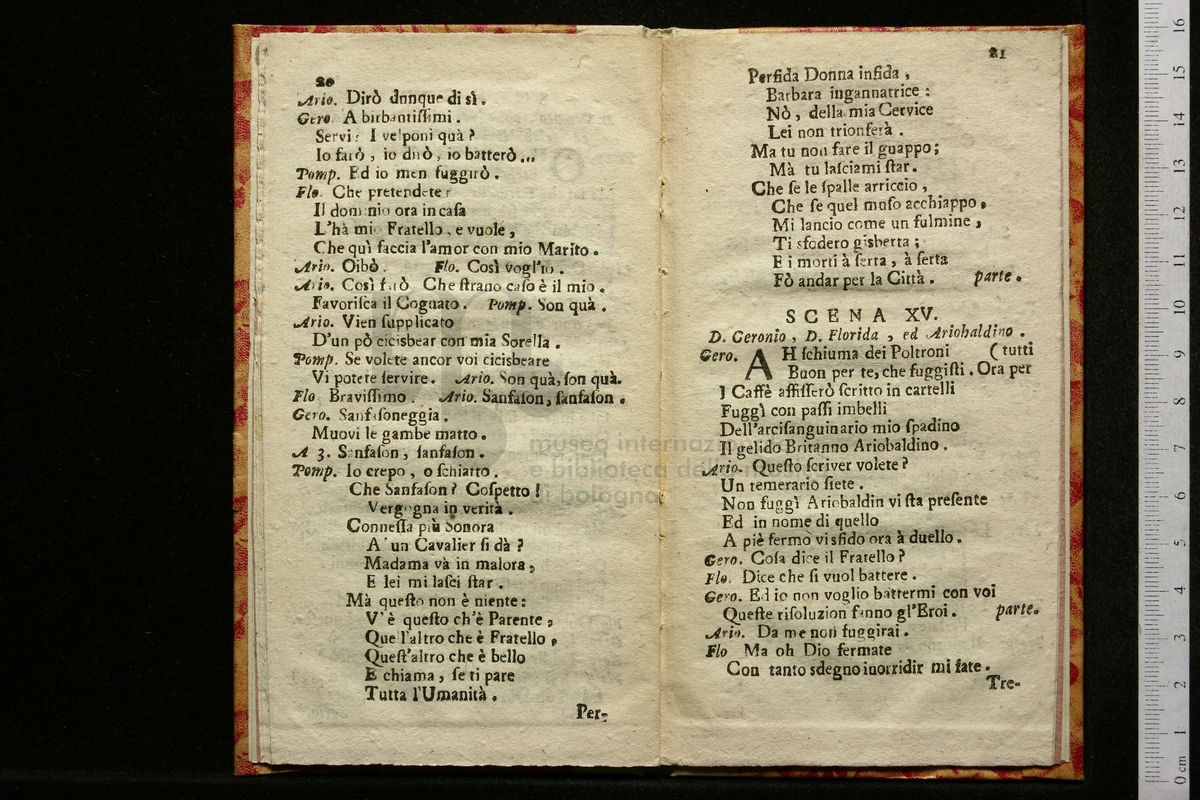 20
Ario. Dirò dnnque di sì.
Gero. A birbantiſſimi.
Servi: I veſponi quà?
Io farò, io dirò, io batterò...
Pomp. Ed io men fuggirò.
Flo. Che pretendete?
Il dominio ora in caſa
L'hà mio Fratello, e vuole,
Che quì faccia l'amor con mio Marito.
Ario. Oibò. Flo. Così vogl'io.
Ario. Così farò Che ſtrano caſo è il mio.
Favoriſca il Cognato. Pomp. Son quà.
Ario. Vien ſupplicato
D'un pò cicisbear con mia Sorella.
Pomp. Se volete ancor voi cicisbeare
Vi potete ſervire. Ario. Son quà, ſon quà.
Flo Braviſſimo. Ario. Sanfaſon, ſanfaſon.
Gero. Sanfaſoneggia.
Muovi le gambe matto.
A 3. Sanfaſon, ſanfaſon.
Pomp. Io crepo, o ſchiatto.
Che Sanfaſon? Coſpetto!
Vergogna in verità.
Conneſſa più Sonora
A' un Cavalier ſi dà?
Madama và in malora,
E lei mi laſci ſtar.
Mà queſto non è niente:
V' è queſto ch'è Parente,
Que l'altro che è Fratello,
Queſt'altro che è bello
E chiama, ſe ti pare
Tutta l'Umanità.
Per-
21
Perfida Donna infida,
Barbara ingannatrice:
Nò, della mia Cervice
Lei non trionferà.
Ma tu non fare il guappo;
Mà tu laſciami ſtar.
Che ſe le ſpalle arriccio,
Che ſe quel muſo acchiappo,
Mi lancio come un fulmine,
Ti sfodero gisberta;
E i morti à ſerta, à ſerta
Fò andar per la Città. parte.
SCENA XV.
D. Geronio, D. Florida, ed Ariobaldino.
Gero. AH ſchiuma dei Poltroni (tutti
Buon per te, che fuggiſti. Ora per
I Caffè affiſſerò ſcritto in cartelli
Fuggì con paſſi imbelli
Dell'arciſanguinario mio ſpadino
Il gelido Britanno Ariobaldino.
Ario. Queſto ſcriver volete?
Un temerario ſiete.
Non fuggì Ariobaldin vi ſta preſente
Ed in nome di quello
A piè fermo vi sfido ora à duello.
Gero. Coſa dice il Fratello?
Flo. Dice che ſi vuol battere.
Gero. Ed io non voglio battermi con voi
Queſte riſoluzion fanno gl'Eroi. parte.
Ario. Da me non fuggirai.
Flo Ma oh Dio fermate
Con tanto sdegno inorridir mi fate.
Tre-
museo internazionale
e biblioteca della musica
di bologna
16
15
14
13
12
11
10
9
8
7
6
5
4
3
2
1
0 cm